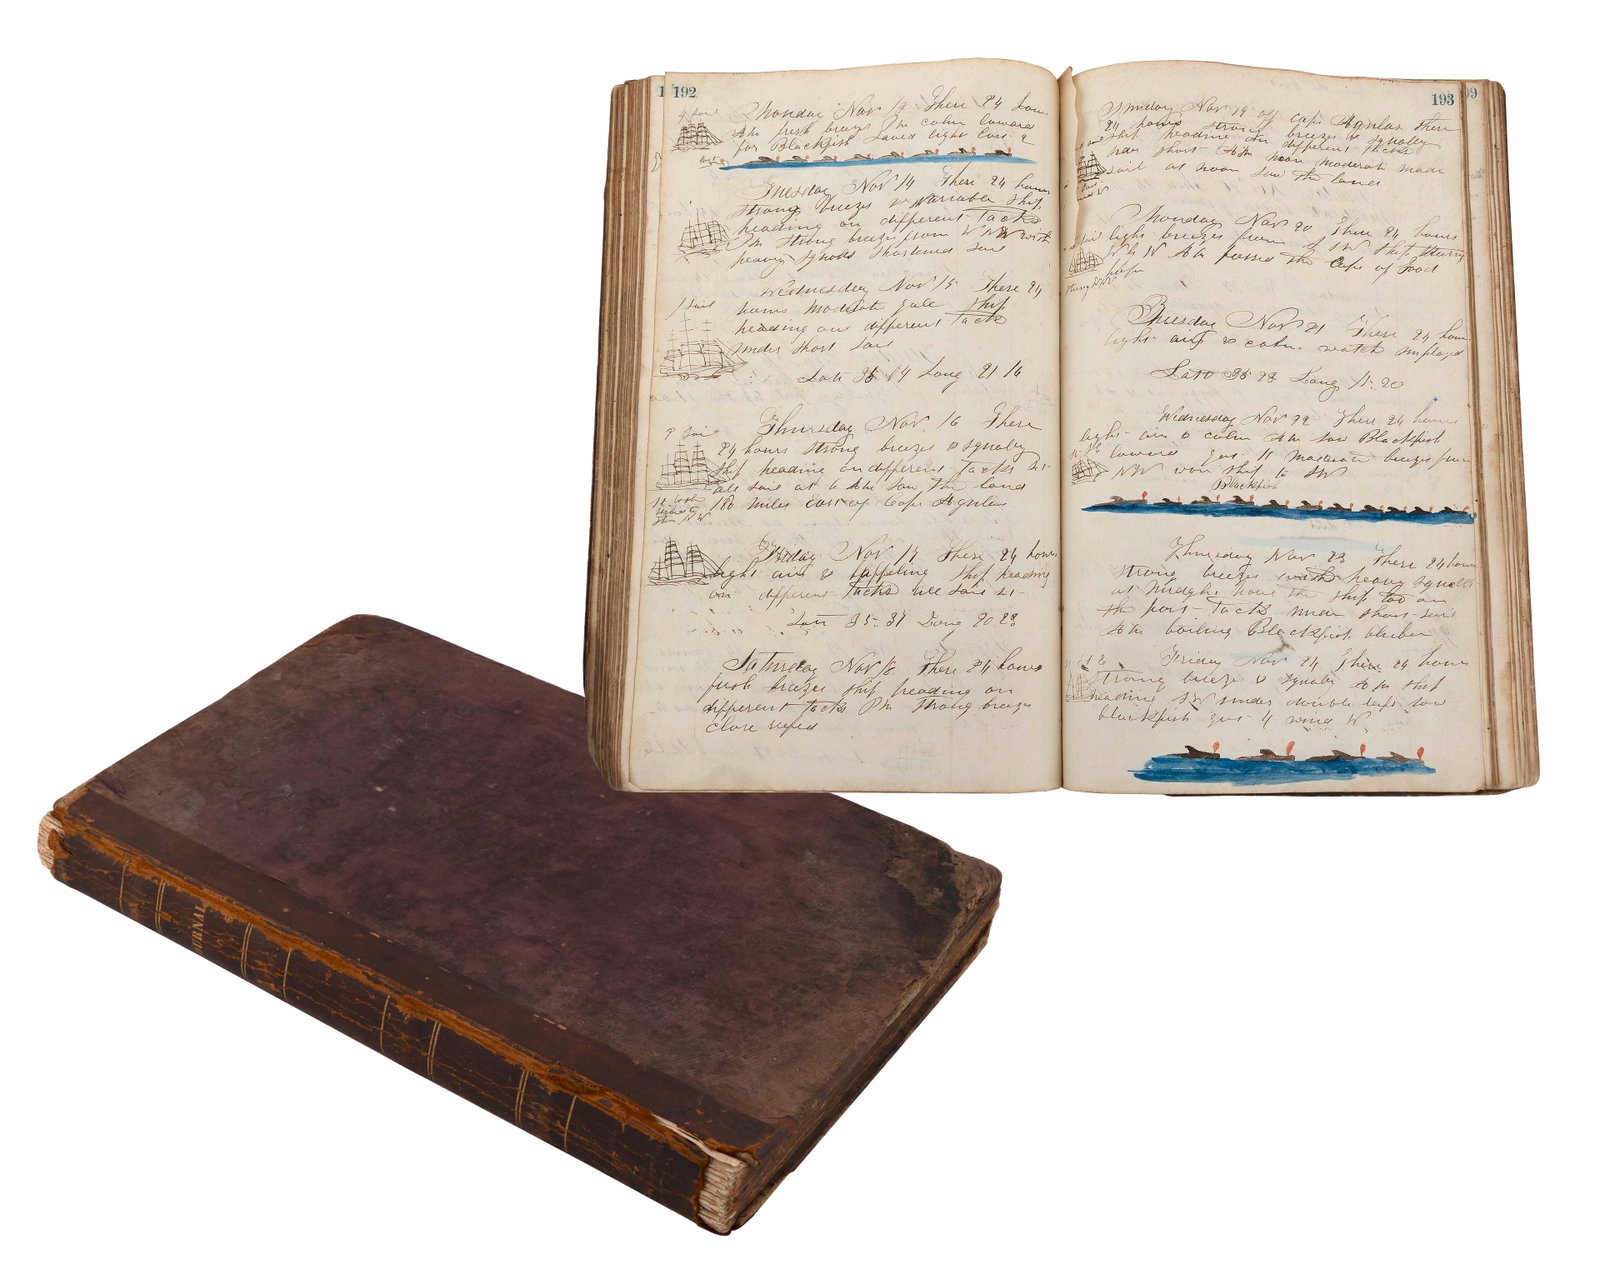 192
4 Sail
Monday Nov 13 These 24 hours
Am fresh breeze Pm calm lowered
for Blackfish Saved eight lost 2
lost
Tuesday Nov 14 These 24 hours
strong breezes & variable ship
heading on different tacks
Pm strong breezes from W N W with
heavy squalls shortened sail
Wednesday Nov 15 These 24
1 Sail
hours moderate gale ship
heading on different tacks
under short sail
Latt 35 14 Long 21 16
Thursday Nov 16 These
24 hours strong breezes & squally
ship heading on different tacks
all sail at 6 Am saw the land
180 miles east of Cape Agulas
Friday Nov 17 These 24 hours
light airs & ship heading
on different tacks all sail
Latt 35.31 20 23
Saturday Nov 18 These 24 hours
fresh breezes ship heading on
different tacks Pm strong breezes
close reefed
193
99
Sunday Nov 19 of cape Agulas these
24 hours strong breezes & squally
ship heading on different tacks
under short Am more moderate made
sail at noon saw the land
Monday Nov 20 These 24 hours
light breezes from SW ship steering
W N W Am passed the Cape of Good
hope
Tuesday Nov 21 These 24 hours
light airs & calm watch employed
Latt 35 23 Long 17.20
Wednesday Nov 22 These 24 hours
light airs & calm Am saw Blackfish
lowered got 11 moderate breeze from
NW ship to SW
Blackfish
Thursday Nov 23 These 24 hours
strong breezes with heavy squalls
at Midnight hove the ship too on
the port tacks under short sail
Am boiling Blackfish blubber
Friday Nov 24 These 24 hours
strong breeze & squally Am ship
heading SW under double saw
blackfish got 4 wind W
JOURNAL